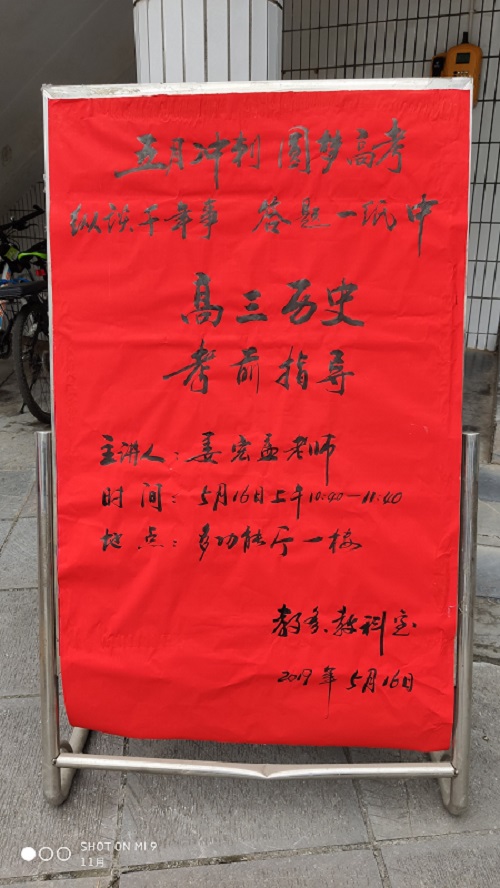 五月冲刺 圆梦高考
纵谈千年事 答题一纸中
高三历史
考前指导
主讲人：姜宏孟老师
时间：5月16日上午10:40—11:40
地点：多功能厅一楼
教务教科室
2019年5月16日
SHOT ON MI 9
11月